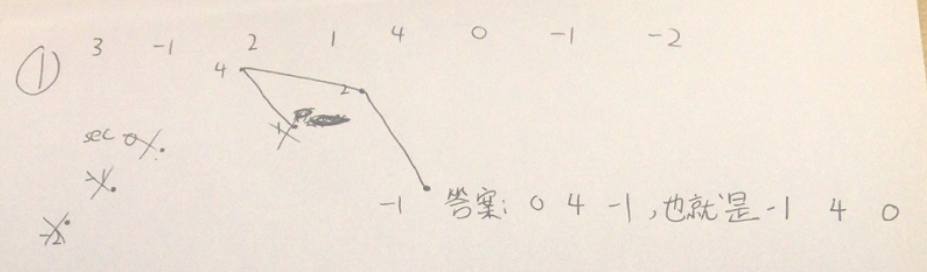 ① 3 -1 2 1 4 0 -1 -2
4
2
1
sec 0
-1
-2
-1 答案: 0 4 -1, 也就是 -1 4 0